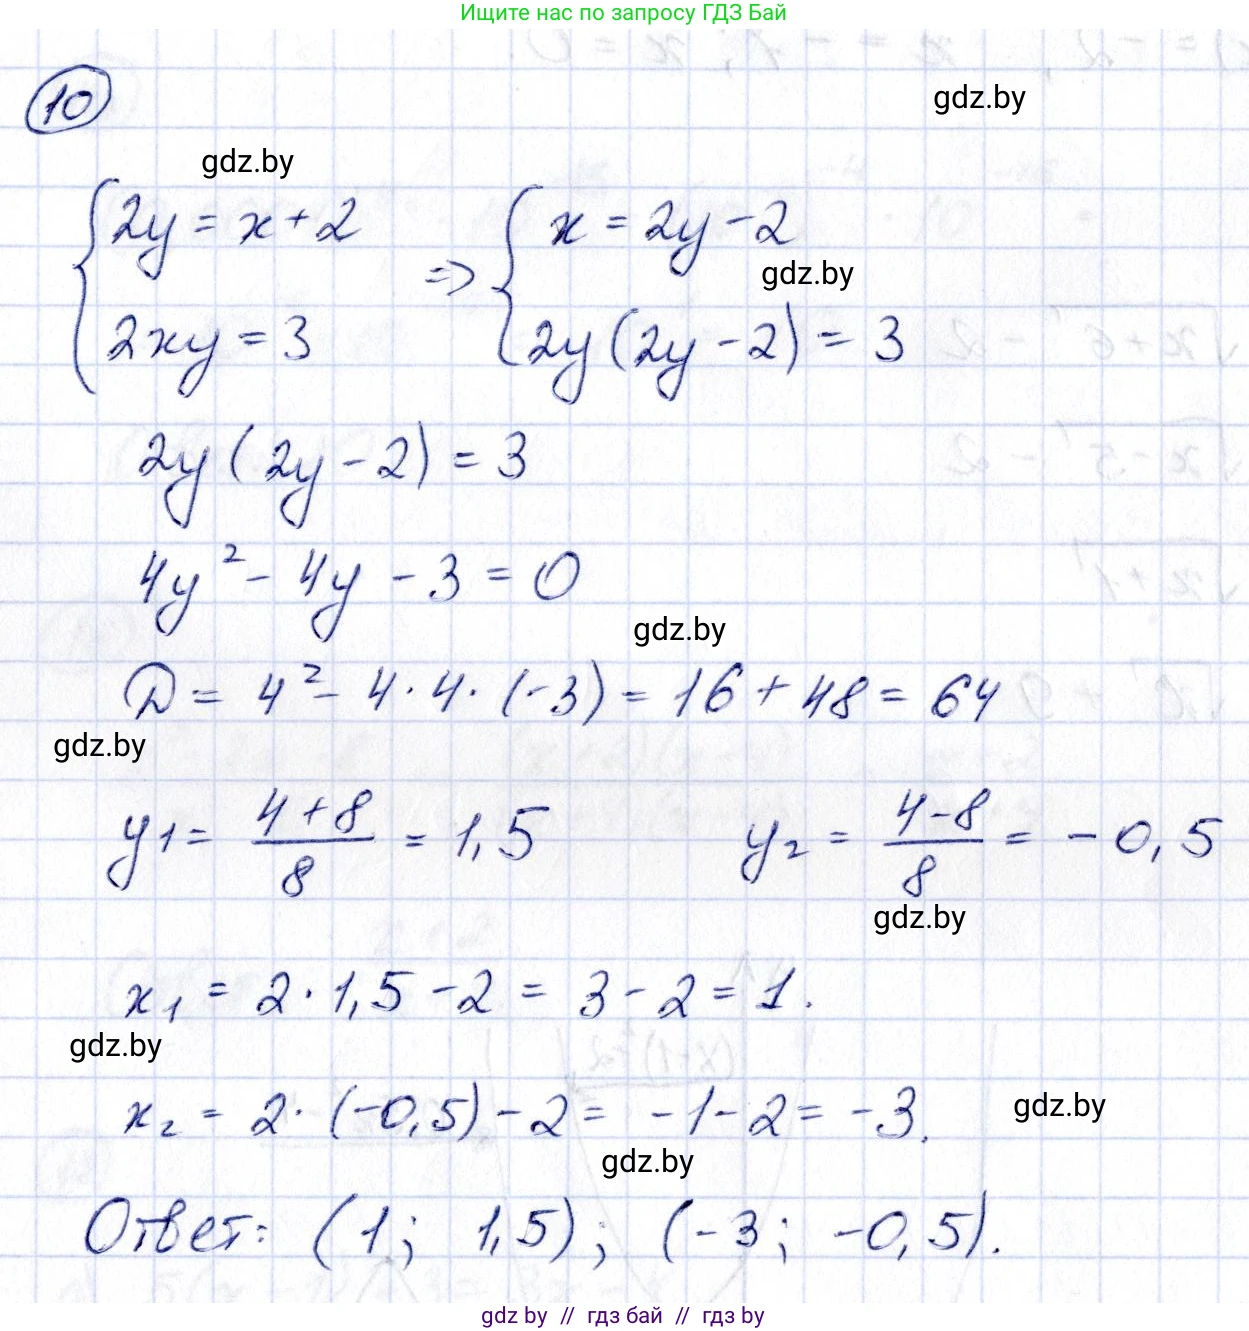 Ищите нас по запросу ГДЗ Бай
10
gdz.by
gdz.by
{ 2y = x + 2
2xy = 3
=> { x = 2y - 2
2y(2y - 2) = 3
gdz.by
2y(2y - 2) = 3
4y² - 4y - 3 = 0
gdz.by
D = 4² - 4 · 4 · (-3) = 16 + 48 = 64
gdz.by
y1 = (4 + 8)/8 = 1,5 y₂ = (4 - 8)/8 = -0,5
gdz.by
x₁ = 2 · 1,5 - 2 = 3 - 2 = 1.
gdz.by
x₂ = 2 · (-0,5) - 2 = -1 - 2 = -3.
gdz.by
gdz.by
Ответ: (1; 1,5); (-3; -0,5).
gdz by // гдз бай // гдз by